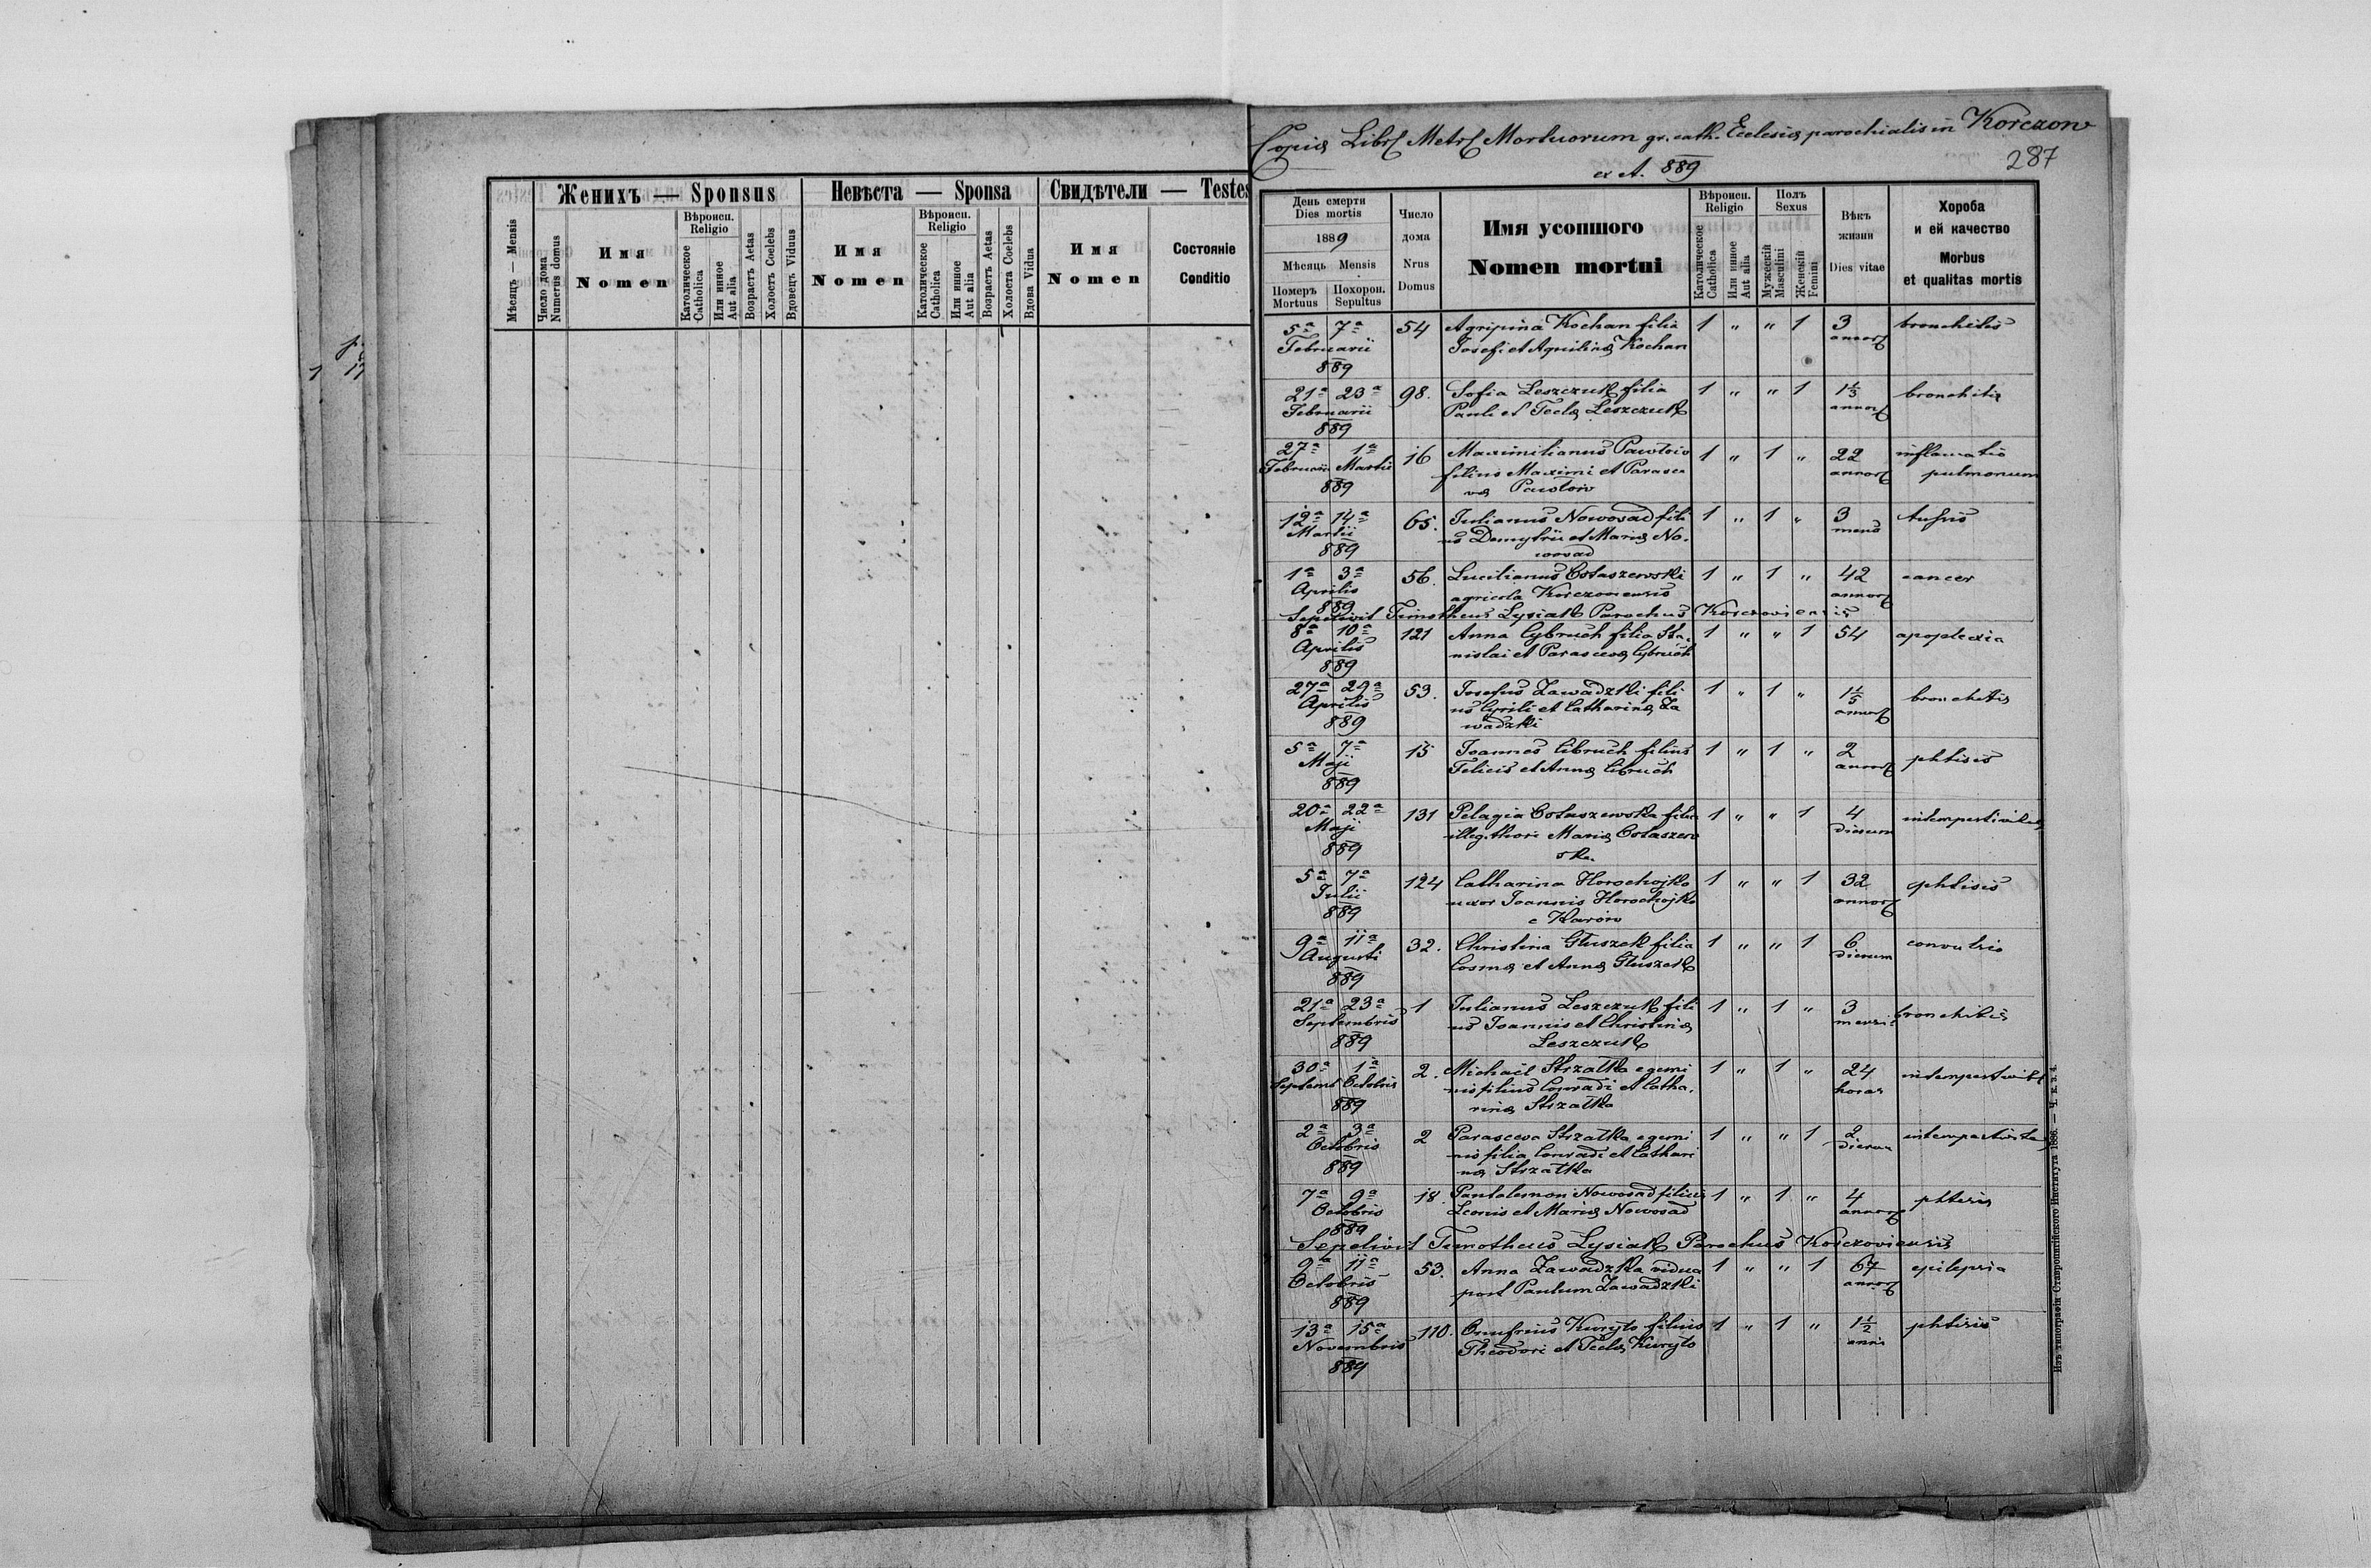 Женихъ — Sponsus
Невѣста — Sponsa
Свидѣтели — Testes
Мѣсяць — Mensis
Число дома
Numerus domus
Имя
Nomen
Вѣроисп.
Religio
Католическое
Catholica
Или инное
Aut alia
Возрастъ Aetas
Холостъ Coelebs
Вдовецъ Viduus
Имя
Nomen
Вѣроисп.
Religio
Католическое
Catholica
Или инное
Aut alia
Возрастъ Aetas
Холоста Coelebs
Вдова Vidua
Имя
Nomen
Состояніе
Conditio
Copia Libr. Metr. Mortuorum gr. cath. Ecclesiæ parochialis in Korczow
ex A. 889
287
День смерти
Dies mortis
1889
Мѣсяць Mensis
Померъ
Mortuus
Похорон.
Sepultus
Число
дома
Nrus
Domus
Имя усопшого
Nomen mortui
Вѣроисп.
Religio
Католическое
Catholica
Или инное
Aut alia
Полъ
Sexus
Мужескій
Masculini
Женскій
Femini
Вѣкъ
жизни
Dies vitae
Хороба
и ей качество
Morbus
et qualitas mortis
5ª 7ª 54 Agripina Kochan filia 1 " " 1 3 bronchitis
Februarii Josefi et Aquilinæ Kochan annor.
889
21ª 23ª 98. Sofia Leszczuk filia 1 " " 1 1⅓ bronchitis
Februarii Pauli et Teclæ Leszczuk annor.
889
27ª 1ª 16 Maximilianus Pawłoiw 1 " 1 " 22 inflamatio
Februarii Martii filius Maximi et Parasce annor. pulmonum
889 væ Pawłoiw
12ª 14ª 65. Julianus Nowosad fili 1 " 1 " 3 tussis
Martii us Demytrii et Mariæ No- mens
889 wosad
1ª 3ª 56. Lucilianus Ostaszewski 1 " 1 " 42 cancer
Aprilis agricola Korczoviensis annor.
889
Sepelivit Timotheus Lysiak Parochus Korczoviensis
8ª 10ª 121 Anna Cybruch filia Sta- 1 " " 1 54 apoplexia
Aprilis nislai et Parascevæ Cybruch
889
27ª 29ª 53. Josefus Zawadzki fili 1 " 1 " 1⅕ bronchitis
Aprilis us Cyrili et Catharinæ Za annor.
889 wadzki
5ª 7ª 15 Joannes Cibruch filius 1 " 1 " 2 phtisis
Maji Felicis et Annæ Cibruch annor.
889
20ª 22ª 131 Pelagia Ostaszewska filia 1 " " 1 4
Maji illeg. thori Mariæ Ostaszew dierum
889 ska.
5ª 7ª 124 Catharina Horochojko 1 " " 1 32 phtisis
Julii uxor Joannis Horochojko annor.
889
9ª 11ª 32. Christina Głuszek filia 1 " " 1 6 convulsio
Augusti Cosmæ et Annæ Głuszek dierum
889
21ª 23ª 1 Julianus Leszczuk fili 1 " 1 " 3 bronchitis
Septembris us Joannis et Christinæ
889 Leszczuk
30ª 1ª 2. Michaël Strzałka e gemi 1 " 1 " 24
Septemb Octobris nis filius Conradi et Catha- horas
889 rinæ Strzałka
2ª 3ª 2 Parasceva Strzałka e gemi 1 " " 1 2
Octobris nis filia Conradi et Cathari
889 næ Strzałka
7ª 9ª 18. Pantalemon Nowosad filius 1 " 1 " 4 phtisis
Octobris Leonis et Mariæ Nowosad annor.
889
Sepelivit Timotheus Lysiak Parochus Korczoviensis
9ª 11ª 53. Anna Zawadzka vidua 1 " " 1 67 epilepsia
Octobris post Paulum Zawadzki annor.
889
13ª 15ª 110. Onufrius Kuryło filius 1 " 1 " 1½ phtisis
Novembris Theodori et Teclæ Kuryło anni
889
Изъ типографіи Ставропигійского Института 1886. — Ч. к. з. 4.